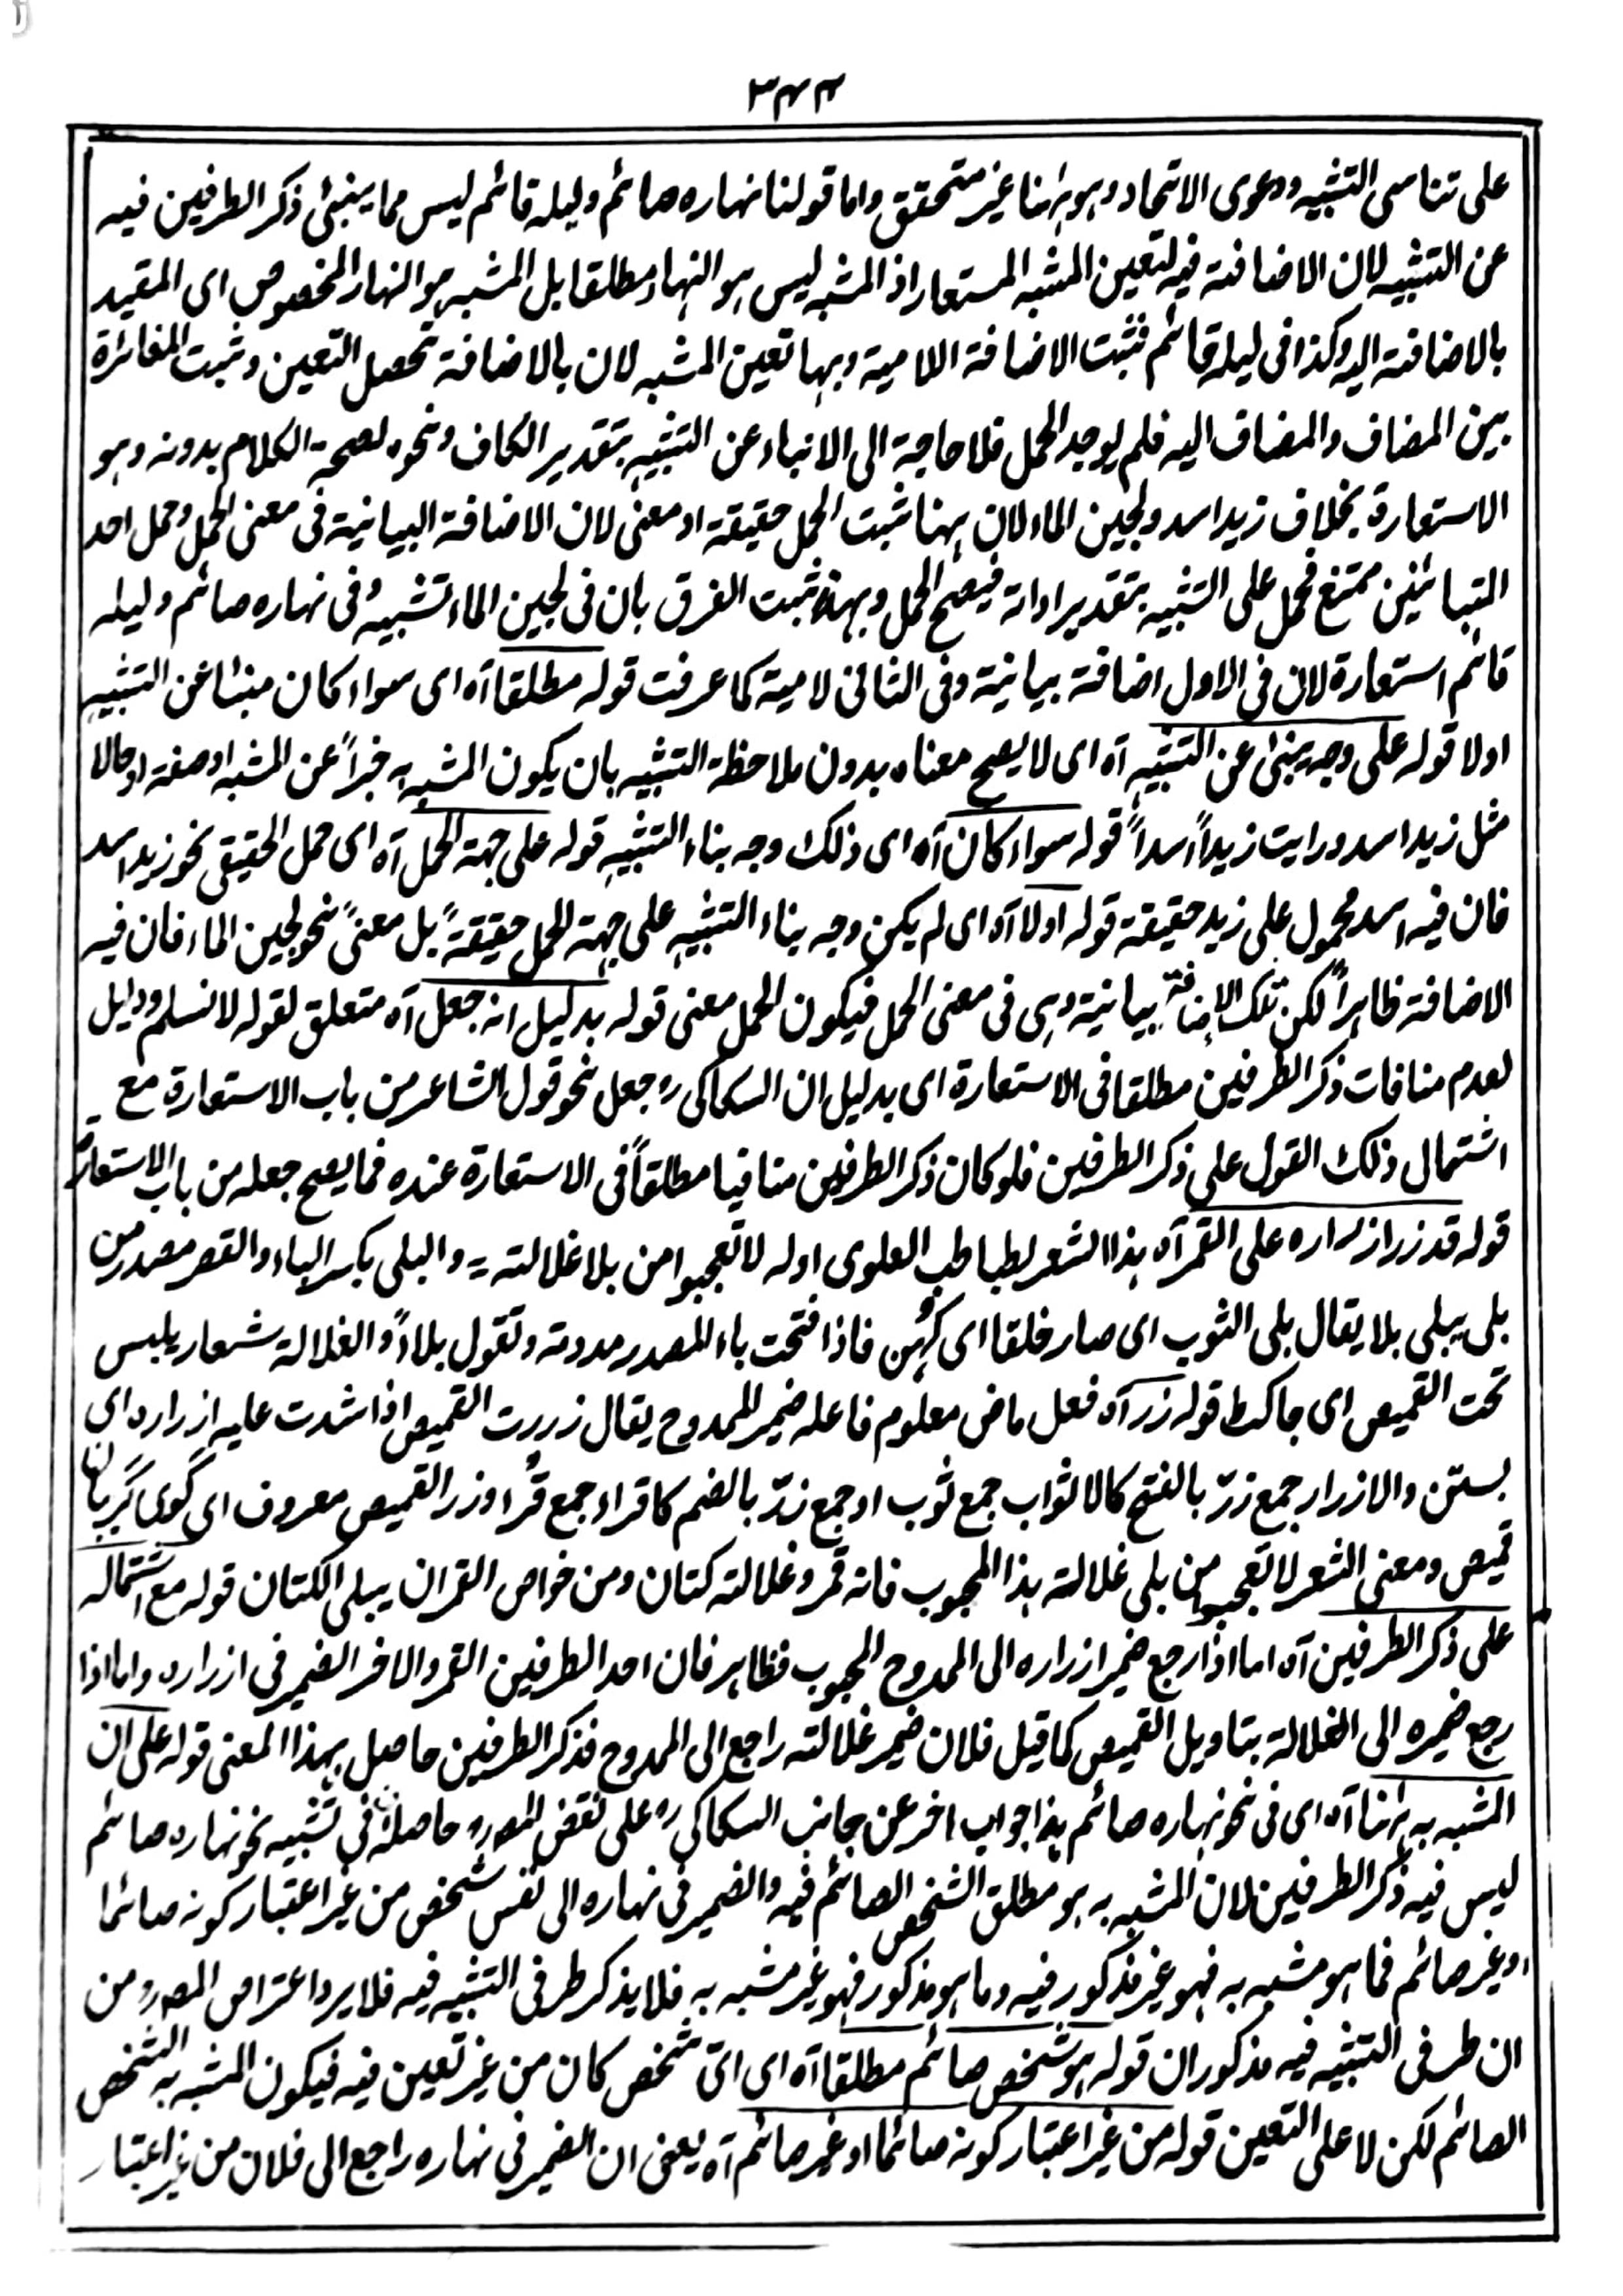 ۳۴۴
على تناسى التشبيه ودعوى الاتحاد وهو ہٰهنا غير متحقق واما قولنا نهاره صائم وليله قائم ليس مما ينبئ ذكر الطرفين فيه
عن التشبيه لان الاضافة فيه لتعين المشبه المستعار اذ المشبه ليس هو النهار مطلقا بل المشبه هو النهار المخصوص اى المقيد
بالاضافة اليه وكذا فى ليله قائم فثبت الاضافة اللامية وبها تعين المشبه لان بالاضافة تحصل التعين وثبت المغائرة
بين المضاف والمضاف اليه فلم يوجد الحمل فلا حاجة الى الانباء عن التشبيه بتقدير الكاف ونحوه لصحة الكلام بدونه وهو
الاستعارة بخلاف زيد اسد ولجين الماء لان ههنا ثبت الحمل حقيقة او معنى لان الاضافة البيانية فى معنى الحمل وحمل احد
المتبائنين ممتنع فحمل على التشبيه بتقدير اداته فيصح الحمل وبهذا ثبت الفرق بان فى لجين الماء تشبيه وفى نهاره صائم وليله
قائم استعارة لان فى الاول اضافة بيانية وفى الثانى لامية كما عرفت قوله مطلقا آه اى سواء كان مبنئا عن التشبيه
اولا قوله على وجه ينبئ عن التشبيه آه اى لا يصح معناه بدون ملاحظة التشبيه بان يكون المشبه به خبراً عن المشبه او صفة او حالا
مثل زيد اسد ورايت زيداً اسداً قوله سواء كان آه اى ذلك وجه بناء التشبيه قوله على جهة الحمل آه اى حمل الحقيقى نحو زيد اسد
فان فيه اسد محمول على زيد حقيقة قوله اولا آه اى لم يكن وجه بناء التشبيه على جهة الحمل حقيقةً بل معنىً نحو لجين الماء فان فيه
الاضافة ظاهراً لكن تلك الاضافة بيانية وهى فى معنى الحمل فيكون الحمل معنى قوله بدليل انه جعل آه متعلق لقوله لا نسلم ودليل
لعدم منافات ذكر الطرفين مطلقا فى الاستعارة اى بدليل ان السكاكى رہ جعل نحو قول الشاعر من باب الاستعارة مع
اشتمال ذلك القول على ذكر الطرفين فلو كان ذكر الطرفين منافيا مطلقاً فى الاستعارة عنده فما يصح جعله من باب الاستعارة
قوله قد زر ازراره على القمر آه هذا الشعر لطباطب العلوى اوله لا تعجبوا من بلا غلالته = والبلى بكسر الباء والقصر مصدر من
بلى يبلى بلا يقال بلى الثوب اى صار خلقا اى كہن فاذا فتحت باء المصدر مددته وتقول بلاءً والغلالة شعار يلبس
تحت القميص اى جاكٹ قوله زر آه فعل ماض معلوم فاعله ضمير للمدوح يقال زررت القميص اذا شدت عليه ازراره اى
بستن والازرار جمع زرّ بالفتح كالاثواب جمع ثوب او جمع زرّ بالضم كاقراء جمع قُرء وزر القميص معروف اى گوى گريبان
قميص ومعنى الشعر لا تعجبوا من بلى غلالة هذا المحبوب فانه قمر وغلالته كتان ومن خواص القمر ان يبلى الكتان قوله مع اشتماله
على ذكر الطرفين آه اما اذا رجع ضمير ازراره الى الممدوح المحبوب فظاهر فان احد الطرفين القمر والاخر الضمير فى ازراره واما اذا
رجع ضميره الى الغلالة بتاويل القميص كما قيل فلان ضمير غلالته راجع الى الممدوح فذكر الطرفين حاصل بهذا المعنى قوله على ان
المشبه به ہٰهنا آه اى فى نحو نهاره صائم هذا جواب اخر عن جانب السكاكى رہ على نقض المصہ رہ حاصله فى تشبيه نحو نهاره صائم
ليس فيه ذكر الطرفين لان المشبه به هو مطلق الشخص الصائم فيه والضمير فى نهاره الى نفس شخص من غير اعتبار كونه صائما
او غير صائم فما هو مشبه به فهو غير مذكور فيه وما هو مذكور فهو غير مشبه به فلا يذكر طرفى التشبيه فيه فلا يرد اعتراض المصہ رہ من
ان طرفى التشبيه فيه مذكوران قوله هو شخص صائم مطلقا آه اى اىّ شخص كان من غير تعين فيه فيكون المشبه به الشخص
الصائم لكن لا على التعين قوله من غير اعتبار كونه صائما او غير صائم آه يعنى ان الضمير فى نهاره راجع الى فلان من غير اعتبار